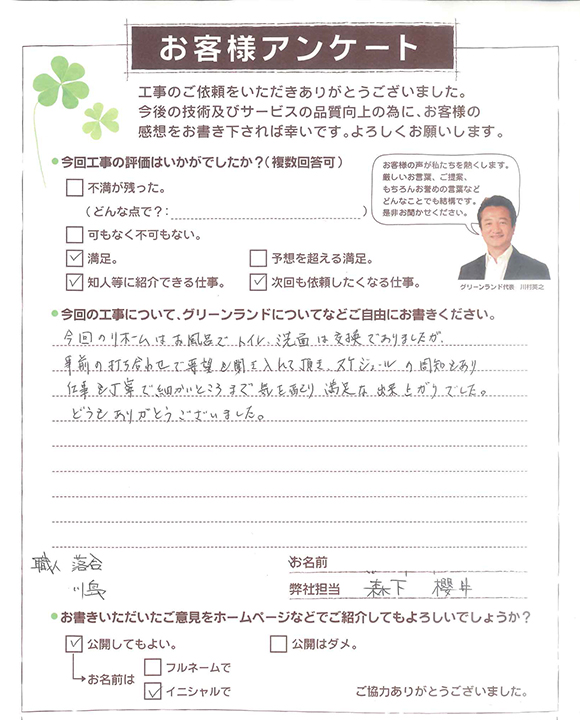 お客様アンケート
工事のご依頼をいただきありがとうございました。
今後の技術及びサービスの品質向上の為に、お客様の
感想をお書き下されば幸いです。よろしくお願いします。
今回工事の評価はいかがでしたか？（複数回答可）
不満が残った。
（どんな点で？：　）
可もなく不可もない。
満足。
予想を超える満足。
知人等に紹介できる仕事。
次回も依頼したくなる仕事。
お客様の声が私たちを熱くします。
厳しいお言葉、ご提案、
もちろんお誉めの言葉など
どんなことでも結構です。
是非お聞かせください。
グリーンランド代表　川村英之
今回の工事について、グリーンランドについてなどご自由にお書きください。
今回のリホームはお風呂で トイレ、洗面は交換でありましたが、
事前の打ち合わせで要望も聞き入れて頂き、スケジュールの周知もあり
仕事も丁寧で細かいところまで気を配り 満足な出来上がりでした。
どうもありがとうございました。
職人 落合
川島
お名前
弊社担当 森下 櫻井
お書きいただいたご意見をホームページなどでご紹介してもよろしいでしょうか？
公開してもよい。
公開はダメ。
お名前は
フルネームで
イニシャルで
ご協力ありがとうございました。